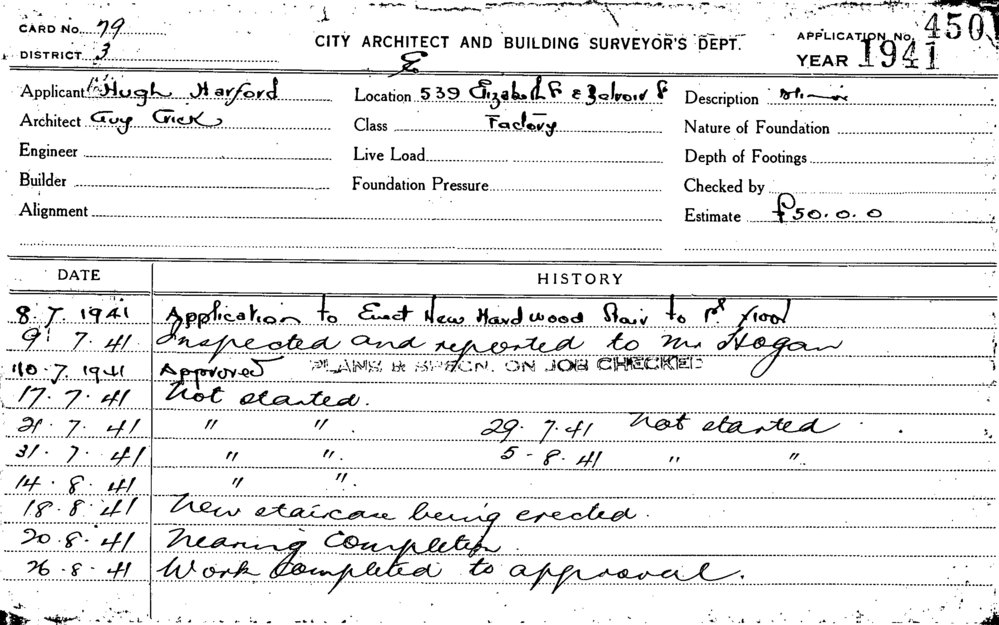 CARD No. 79
DISTRICT 3
CITY ARCHITECT AND BUILDING SURVEYOR'S DEPT.
APPLICATION No. 450
YEAR 1941
Applicant Hugh Harford
Architect Guy Crick
Engineer
Builder
Alignment
Location 539 Elizabeth St &
Class Factory
Live Load
Foundation Pressure
Description
Nature of Foundation
Depth of Footings
Checked by
Estimate £50.0.0
DATE HISTORY
8.7.1941 Application to Erect New Hardwood Stair to 1st floor
9.7.41 Inspected and reported to Mr Hogan
10.7.1941 Approved PLANS & SPECN. ON JOB CHECKED
17.7.41 Not started.
21.7.41 " " . 29.7.41 Not started
31.7.41 " " . 5-8.41 " "
14.8.41 " " .
18.8.41 New staircase being erected.
20.8.41 Nearing Completion.
26.8.41 Work Completed to approval.